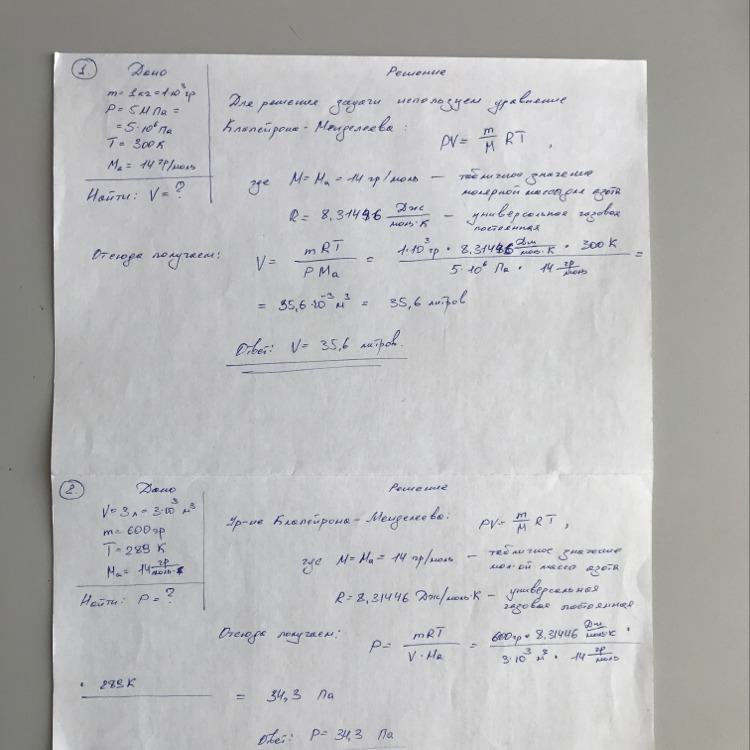 1. Дано
m = 1 кг = 1·10³ гр
P = 5 МПа =
= 5·10⁶ Па
T = 300 К
Mа = 14 гр/моль
Найти: V = ?
Решение
Для решения задачи используем уравнение
Клапейрона-Менделеева: PV = m/M RT ,
где M = Mа = 14 гр/моль — табличное значение
молярной массы для азота
R = 8,31446 Дж/моль·К — универсальная газовая
постоянная
Отсюда получаем: V = mRT / PMа = 1·10³ гр · 8,31446 Дж/моль·К · 300 К / 5·10⁶ Па · 14 гр/моль =
= 35,6·10⁻³ м³ = 35,6 литров
Ответ: V = 35,6 литров.
2. Дано
V = 3 л = 3·10³ м³
m = 600 гр
T = 289 К
Mа = 14 гр/моль
Найти: P = ?
Решение
Ур-ие Клапейрона-Менделеева: PV = m/M RT ,
где M = Mа = 14 гр/моль — табличное значение
мол-ой массы азота
R = 8,31446 Дж/моль·К — универсальная
газовая постоянная
Отсюда получаем: P = mRT / V·Mа = 600 гр · 8,31446 Дж/моль·К · / 3·10³ м³ · 14 гр/моль
· 289 К
= 34,3 Па
Ответ: P = 34,3 Па